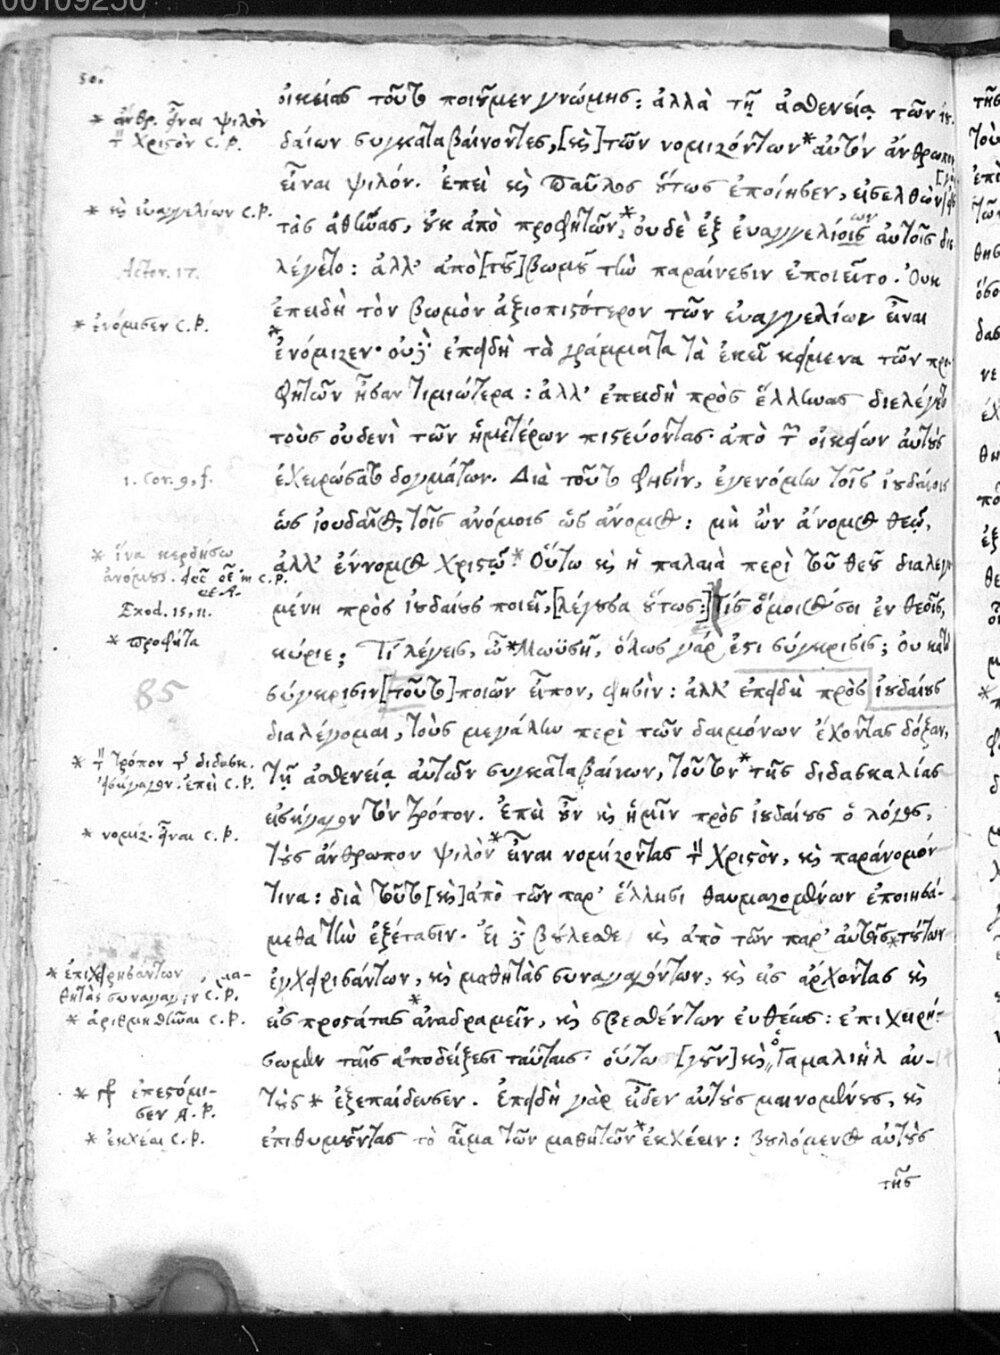 00109250
50.
οἰκείας τοῦτο ποιοῦμεν γνώμης: ἀλλὰ τῇ ἀσθενείᾳ τῶν ἰου-
δαίων συγκαταβαίνοντες, [καὶ] τῶν νομιζόντων * αὐτὸν ἄνθρωπον
εἶναι ψιλόν. ἐπεὶ καὶ Παῦλος οὕτως ἐποίησεν, εἰσελθὼν
τὰς ἀθήνας, οὐκ ἀπὸ προφητῶν, * οὐδὲ ἐξ εὐαγγελίοις αὐτοῖς διε
λέγετο: ἀλλ' ἀπὸ [τοῦ] βωμοῦ τὴν παραίνεσιν ἐποιεῖτο. Οὐκ
ἐπειδὴ τὸν βωμὸν ἀξιοπιστότερον τῶν εὐαγγελίων εἶναι
* ἐνόμιζεν· οὐδ' ἐπειδὴ τὰ γράμματα τὰ ἐκεῖ κείμενα τῶν προ-
φητῶν ἦσαν τιμιώτερα: ἀλλ' ἐπειδὴ πρὸς ἕλληνας διελέγετο
τοὺς οὐδενὶ τῶν ἡμετέρων πιστεύοντας· ἀπὸ τῶν οἰκείων αὐτοὺς
ἐχειρώσατο δογμάτων. Διὰ τοῦτο φησὶν, ἐγενόμην τοῖς ἰουδαίοις
ὡς ἰουδαῖος, τοῖς ἀνόμοις ὡς ἄνομος: μὴ ὢν ἄνομος θεῷ,
ἀλλ' ἔννομος Χριστῷ * Οὕτω καὶ ἡ παλαιὰ περὶ τοῦ θεοῦ διαλεγο
μένη πρὸς ἰουδαίους ποιεῖ, [λέγουσα οὕτως:] τίς ὅμοιός σοι ἐν θεοῖς,
κύριε; Τί λέγεις, ὦ * Μωϋσῆ, ὅλως γάρ ἐστι σύγκρισις; Οὐ κατὰ
σύγκρισιν [τοῦτο] ποιῶν εἶπον, φησὶν: ἀλλ' ἐπειδὴ πρὸς ἰουδαίους
διαλέγομαι, τοὺς μεγάλην περὶ τῶν δαιμόνων ἔχοντας δόξαν,
τῇ ἀσθενείᾳ αὐτῶν συγκαταβαίνων, τοῦτον * τῆς διδασκαλίας
εἰσήγαγον τὸν τρόπον. Ἐπεὶ οὖν καὶ ἡμῖν πρὸς ἰουδαίους ὁ λόγος,
τοὺς ἄνθρωπον ψιλὸν * εἶναι νομίζοντας τὸν Χριστὸν, καὶ παράνομόν
τινα: διὰ τοῦτο [καὶ] ἀπὸ τῶν παρ' ἕλλησι θαυμαζομένων ἐποιησά-
μεθα τὴν ἐξέτασιν. Εἰ δὲ βούλεσθε καὶ ἀπὸ τῶν παρ' αὐτοῖς * τούτων
ἐγχειρισάντων, καὶ μαθητὰς συναγαγόντων, καὶ εἰς ἄρχοντας καὶ
εἰς προστάτας * ἀναδραμεῖν, καὶ σβεσθέντων εὐθέως: ἐπιχειρή-
σωμεν ταῖς ἀποδείξεσι ταύταις· οὕτω [γοῦν] καὶ ὁ Γαμαλιὴλ αὐ-
τοὺς * ἐξεπαίδευσεν. Ἐπειδὴ γὰρ εἶδεν αὐτοὺς μαινομένους, καὶ
ἐπιθυμοῦντας τὸ αἷμα τῶν μαθητῶν * ἐκχέειν: βουλόμενος αὐτοὺς
τῆς
* ἄνθρ. εἶναι ψιλὸν
τ Χριστὸν C.P.
* καὶ εὐαγγελίων C.P.
Actor. 17.
* ἐνόμισεν C.P.
1. Cor. 9, f.
* ἵνα κερδήσω
ἀνόμους.
Exod. 15, 11.
* προφῆτα
85
* τ τρόπον τ διδασκ.
εἰσήγαγον. ἐπεὶ C.P.
* νομίζ. εἶναι C.P.
* ἐπιχειρησάντων, μα-
θητὰς συναγαγεῖν C.P.
* ἀριθμηθῆναι C.P.
* ἐπεστόμι-
σεν A.P.
* ἐκχέαι C.P.